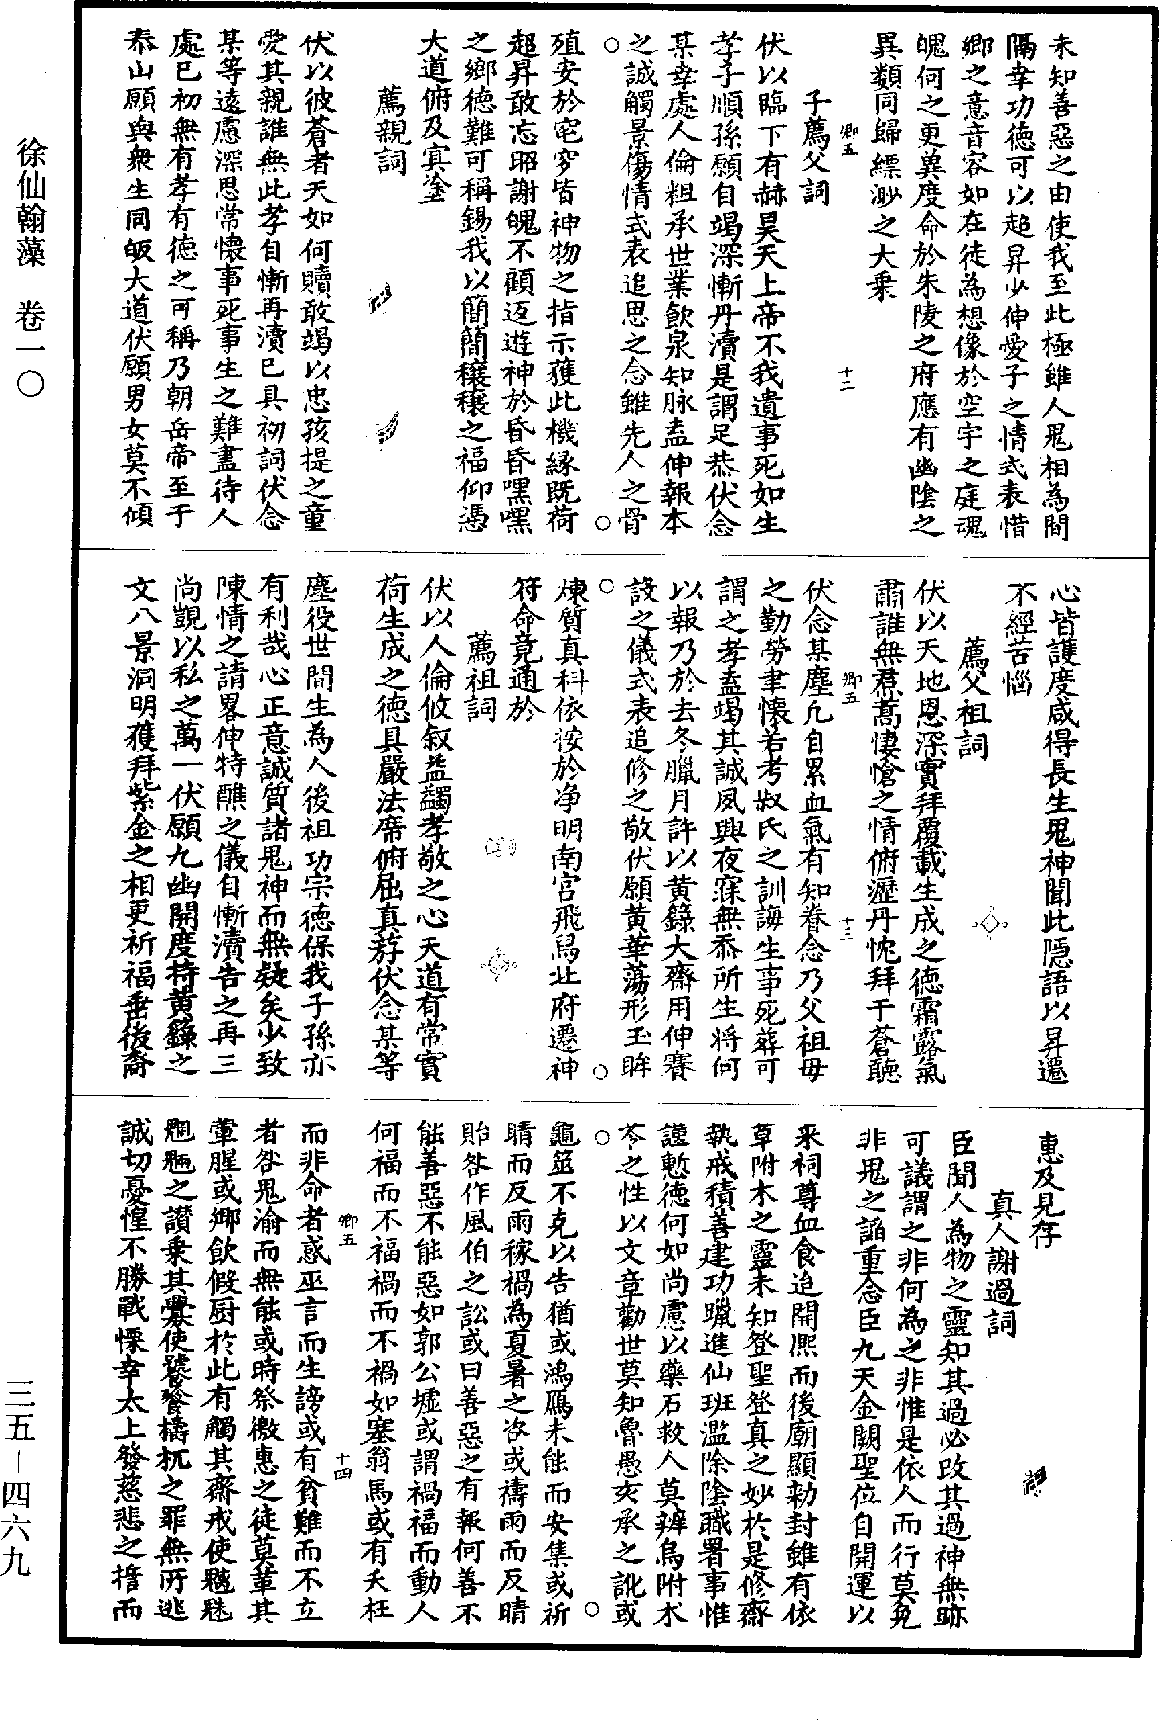 徐仙翰藻　卷一〇
三五－四六九
未知善惡之由使我至此極雖人鬼相為間
隔幸功德可以超昇少伸愛子之情式表惜
鄉之意音容如在徒為想像於空宇之庭魂
魄何之更冀度命於朱陵之府應有幽陰之
異類同歸縹渺之大乗
卿五
十二
子薦父詞
伏以臨下有赫昊天上帝不我遺事死如生
孝子順孫願自竭深慚丹瀆是謂足恭伏念
某幸處人倫粗承世業飲泉知脉盍伸報本
之誠觸景傷情式表追思之念雖先人之骨
殖安於窀穸皆神物之指示獲此機緣既荷
超昇敢忘昭謝魄不顧返遊神於昏昏嘿嘿
之鄉德難可稱錫我以簡簡穰穰之福仰憑
大道俯及冥塗
薦親詞
伏以彼蒼者天如何贖敢竭以忠孩提之童
愛其親誰無此孝自慚再瀆已具初詞伏念
某等遠慮深思常懷事死事生之難盡待人
處已初無有孝有德之可稱乃朝岳帝至于
泰山願與衆生同皈大道伏願男女莫不傾
心皆護度咸得長生鬼神聞此隱語以昇遷
不經苦惱
薦父祖詞
伏以天地恩深實拜覆載生成之德霜露氣
肅誰無焄蒿悽愴之情俯瀝丹忱拜干蒼聽
卿五
十三
伏念某塵凡自累血氣有知眷念乃父祖母
之勤勞聿懷若考叔氏之訓誨生事死葬可
謂之孝盍竭其誠夙興夜寐無忝所生將何
以報乃於去冬臘月許以黄籙大齋用伸賽
設之儀式表追修之敬伏願黄華蕩形玉眸
煉質真科依按於淨明南宫飛舄北府遷神
符命竟通於
薦祖詞
伏以人倫攸叙益蠲孝敬之心天道有常實
荷生成之德具嚴法席俯屈真㳺伏念某等
塵役世間生為人後祖功宗德保我子孫亦
有利哉心正意誠質諸鬼神而無疑矣少致
陳情之請畧伸特醮之儀自慚瀆告之再三
尚覬以私之萬一伏願九幽開度持黄籙之
文八景洞明獲拜紫金之相更祈福垂後裔
惠及見存
真人謝過詞
臣聞人為物之靈知其過必改其過神無跡
可議謂之非何為之非惟是依人而行莫免
非鬼之謟重念臣九天金闕聖位自開運以
来祠尊血食迨開熈而後廟顯勑封雖有依
草附木之靈未知登聖登真之妙於是修齋
執戒積善建功躐進仙班濫除陰職署事惟
謹慙德何如尚慮以藥石救人莫辨烏附朮
苓之性以文章勸世莫知魯愚亥承之訛或
龜筮不克以告猶或鴻鴈未能而安集或祈
晴而反雨稼禍為夏暑之咨或禱雨而反晴
貽咎作風伯之訟或曰善惡之有報何善不
能善惡不能惡如郭公墟或謂禍福而動人
何福而不福禍而不禍如塞翁馬或有夭枉
卿五
十四
而非命者惑巫言而生謗或有貧難而不立
者咎鬼渝而無能或時祭徼惠之徒莫葷其
葷腥或鄉飲假厨於此有觸其齋戒使魑魅
魍魎之讃乗其釁使饕餮檮杌之罪無所逃
誠切憂惶不勝戰慄幸太上發慈悲之擔而